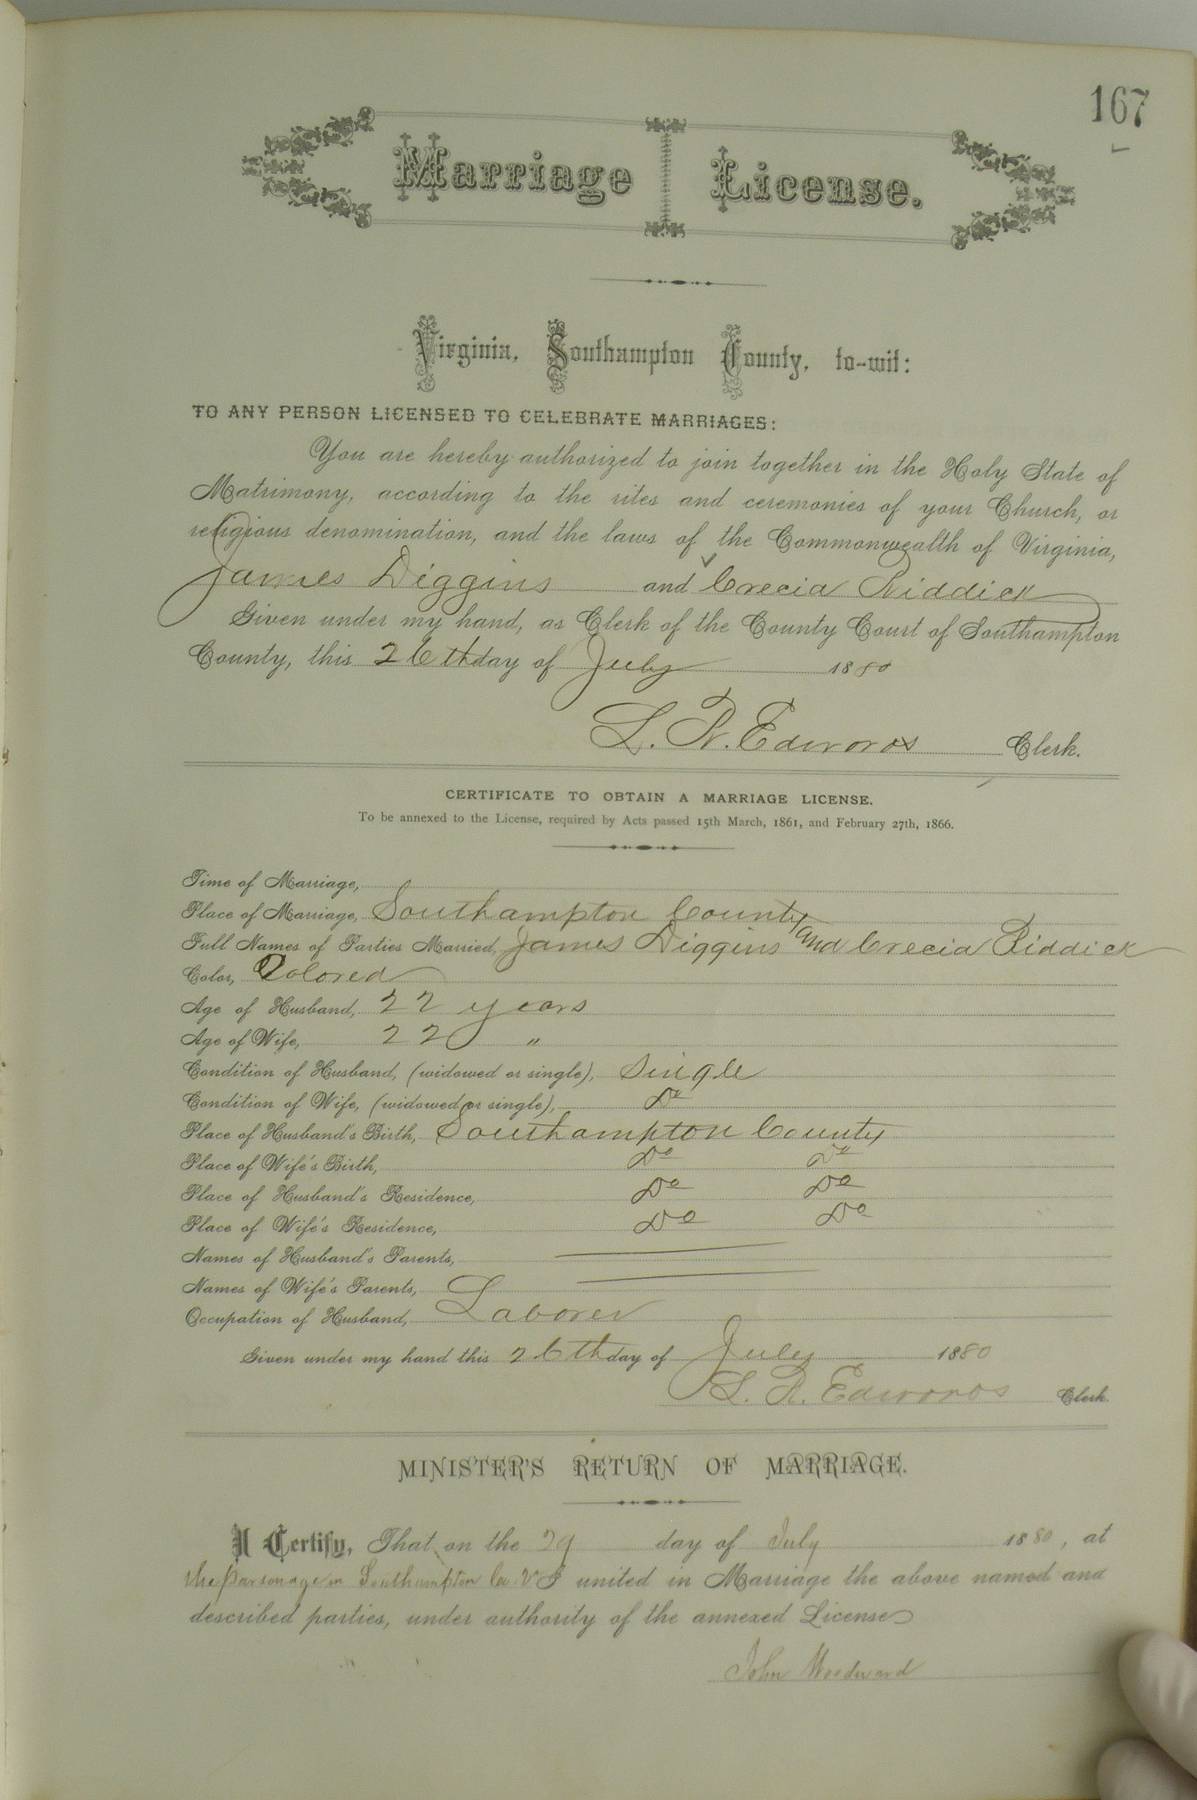 167
Marriage License.
Virginia, Southampton County, to-wit:
TO ANY PERSON LICENSED TO CELEBRATE MARRIAGES:
You are hereby authorized to join together in the Holy State of
Matrimony, according to the rites and ceremonies of your Church, or
religious denomination, and the laws of the Commonwealth of Virginia,
James Diggins and Crecia Riddick
Given under my hand, as Clerk of the County Court of Southampton
County, this 26th day of July 1880
L. R. Edwards Clerk.
CERTIFICATE TO OBTAIN A MARRIAGE LICENSE.
To be annexed to the License, required by Acts passed 15th March, 1861, and February 27th, 1866.
Time of Marriage,
Place of Marriage, Southampton County
Full Names of Parties Married, James Diggins and Crecia Riddick
Color, Colored
Age of Husband, 22 years
Age of Wife, 22 "
Condition of Husband, (widowed or single), Single
Condition of Wife, (widowed or single), Do
Place of Husband's Birth, Southampton County
Place of Wife's Birth, Do Do
Place of Husband's Residence, Do Do
Place of Wife's Residence, Do Do
Names of Husband's Parents,
Names of Wife's Parents,
Occupation of Husband, Laborer
Given under my hand this 26th day of July 1880
L. R. Edwards Clerk.
MINISTER'S RETURN OF MARRIAGE.
I Certify, That on the 29 day of July 1880, at
the parsonage in Southampton Co. V I united in Marriage the above named and
described parties, under authority of the annexed License
John Woodward